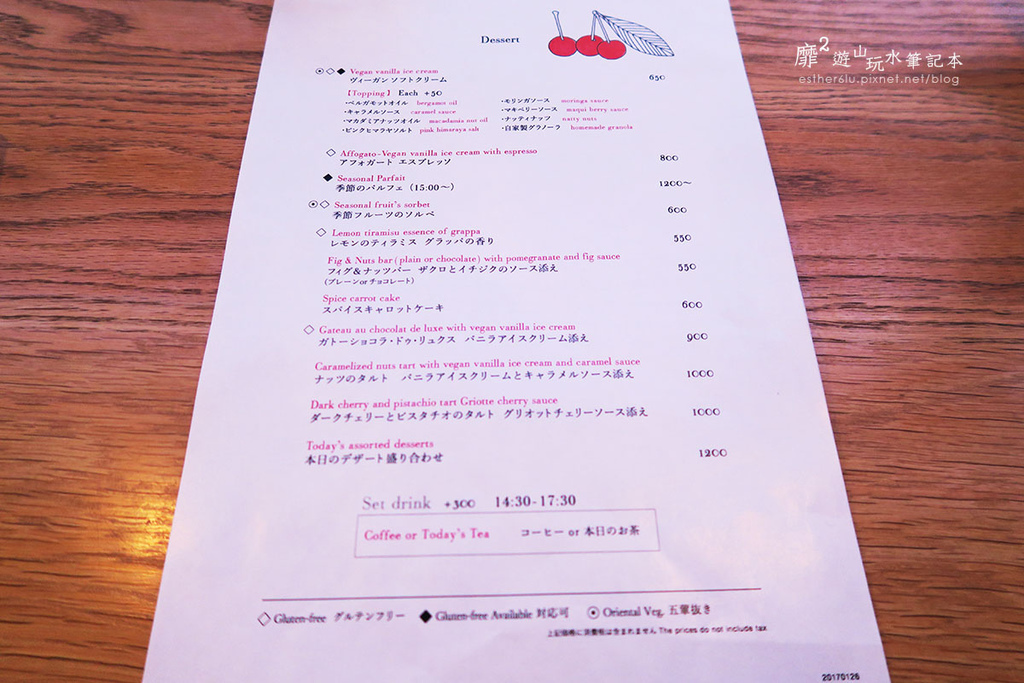 靡2遊山玩水筆記本
estherslu.pixnet.net/blog
Dessert
Vegan vanilla ice cream
ヴィーガン ソフトクリーム 650
【Topping】 Each +50
・ベルガモットオイル bergamot oil ・モリンガソース moringa sauce
・キャラメルソース caramel sauce ・マキベリーソース maqui berry sauce
・マカダミアナッツオイル macadamia nut oil ・ナッティナッツ natty nuts
・ピンクヒマラヤソルト pink himaraya salt ・自家製グラノーラ homemade granola
Affogato-Vegan vanilla ice cream with espresso
アフォガート エスプレッソ 800
Seasonal Parfait
季節のパルフェ（15:00〜） 1200〜
Seasonal fruit's sorbet
季節フルーツのソルベ 600
Lemon tiramisu essence of grappa
レモンのティラミス グラッパの香り 550
Fig & Nuts bar (plain or chocolate) with pomegranate and fig sauce
フィグ＆ナッツバー ザクロとイチジクのソース添え 550
（プレーンorチョコレート）
Spice carrot cake
スパイスキャロットケーキ 600
Gateau au chocolat de luxe with vegan vanilla ice cream
ガトーショコラ・ドゥ・リュクス バニラアイスクリーム添え 900
Caramelized nuts tart with vegan vanilla ice cream and caramel sauce
ナッツのタルト バニラアイスクリームとキャラメルソース添え 1000
Dark cherry and pistachio tart Griotte cherry sauce
ダークチェリーとピスタチオのタルト グリオットチェリーソース添え 1000
Today's assorted desserts
本日のデザート盛り合わせ 1200
Set drink +300 14:30-17:30
Coffee or Today's Tea コーヒー or 本日のお茶
◇ Gluten-free グルテンフリー ◆ Gluten-free Available 対応可 ⦿ Oriental Veg. 五葷抜き
上記価格に消費税は含まれません The prices do not include tax.
20170126